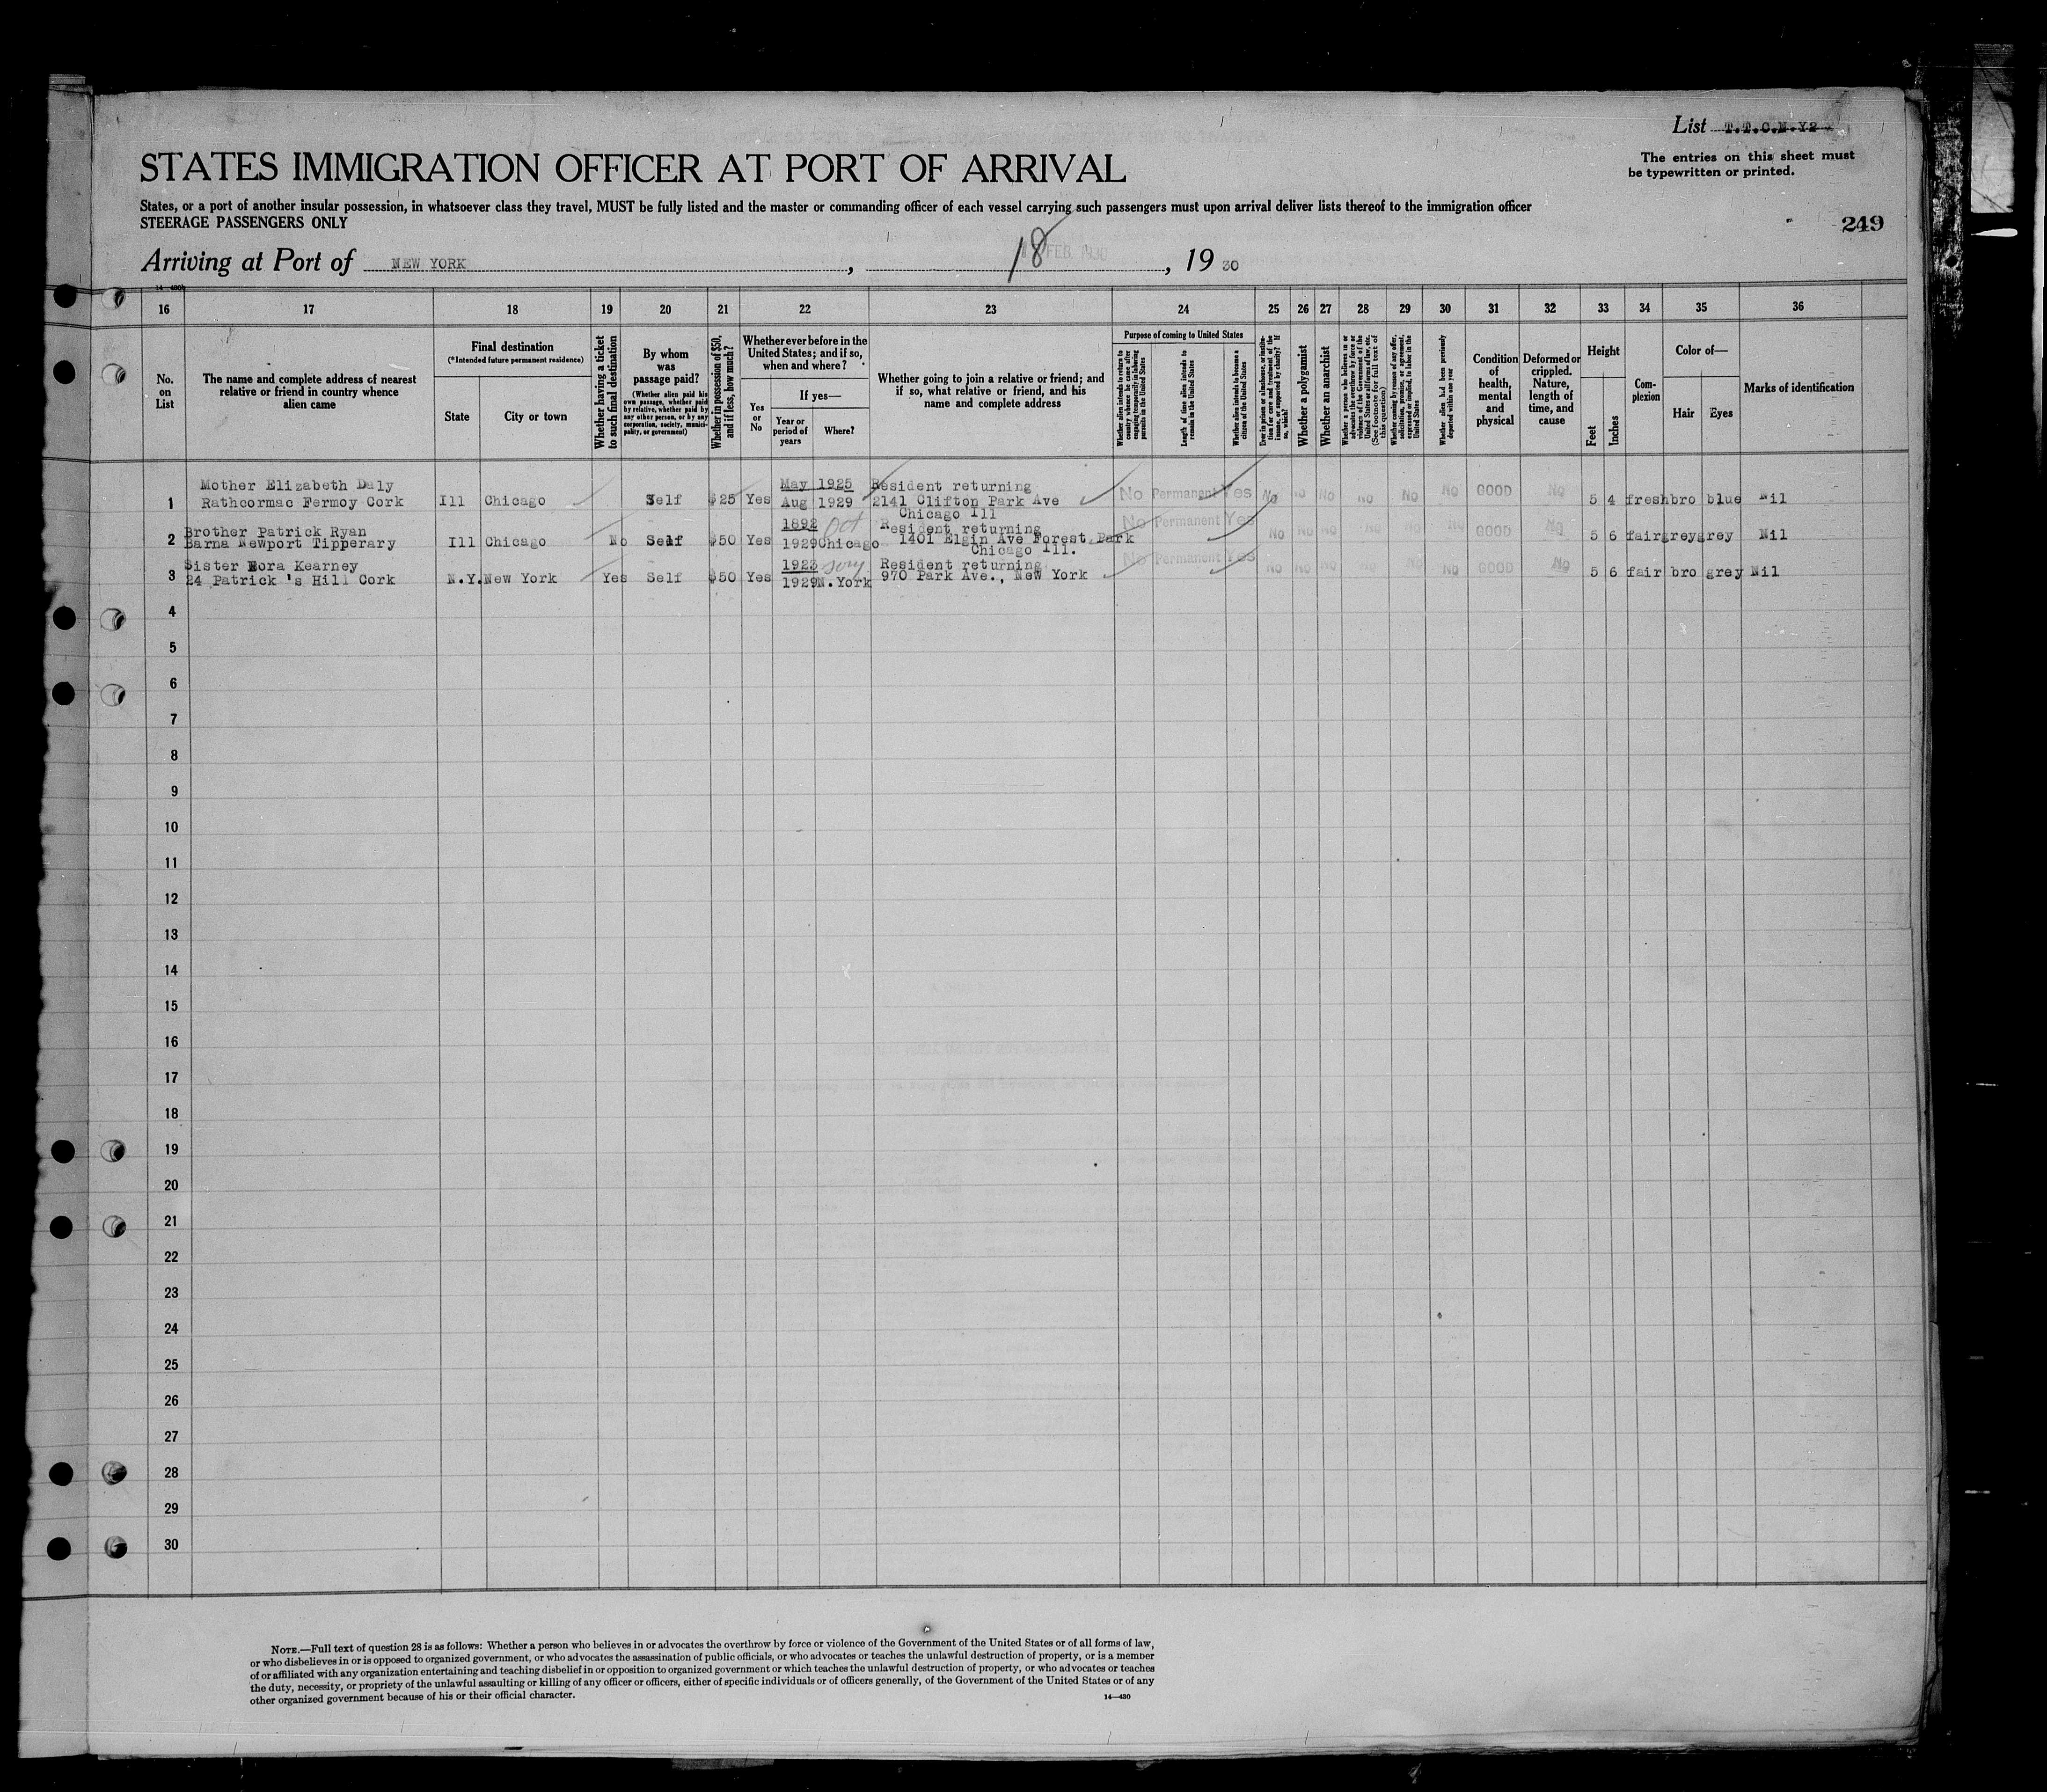 List T.T.C.N.Y2
The entries on this sheet must
be typewritten or printed.
STATES IMMIGRATION OFFICER AT PORT OF ARRIVAL
States, or a port of another insular possession, in whatsoever class they travel, MUST be fully listed and the master or commanding officer of each vessel carrying such passengers must upon arrival deliver lists thereof to the immigration officer
STEERAGE PASSENGERS ONLY
249
Arriving at Port of NEW YORK , 18 FEB 1930 , 19 30
14—430
16 17 18 19 20 21 22 23 24 25 26 27 28 29 30 31 32 33 34 35 36
No.
on
List
The name and complete address of nearest
relative or friend in country whence
alien came
Final destination
(*Intended future permanent residence)
State City or town
Whether having a ticket
to such final destination
By whom
was
passage paid?
(Whether alien paid his
own passage, whether paid
by relative, whether paid by
any other person, or by any
corporation, society, munici-
pality, or government)
Whether in possession of $50,
and if less, how much?
Whether ever before in the
United States; and if so,
when and where?
Yes
or
No
If yes—
Year or
period of
years
Where?
Whether going to join a relative or friend; and
if so, what relative or friend, and his
name and complete address
Purpose of coming to United States
Whether alien intends to return to
country whence he came after
engaging temporarily in laboring
pursuits in the United States
Length of time alien intends to
remain in the United States
Whether alien intends to become a
citizen of the United States
Ever in prison or almshouse, or institu-
tion for care and treatment of the
insane, or supported by charity? If
so, which?
Whether a polygamist
Whether an anarchist
Whether a person who believes in or
advocates the overthrow by force or
violence of the Government of the
United States or all forms of law, etc.
(See footnote for full text of
this question)
Whether coming by reason of any offer,
solicitation, promise, or agreement,
expressed or implied, to labor in the
United States
Whether alien had been previously
deported within one year
Condition
of
health,
mental
and
physical
Deformed or
crippled.
Nature,
length of
time, and
cause
Height
Feet Inches
Com-
plexion
Color of—
Hair Eyes
Marks of identification
Mother Elizabeth Daly May 1925 Resident returning
1 Rathcormac Fermoy Cork Ill Chicago Self $25 Yes Aug 1929 2141 Clifton Park Ave No Permanent Yes No No No No No No GOOD No 5 4 fresh bro blue Nil
Chicago Ill
Brother Patrick Ryan 1892 Oct Resident returning
2 Barna Newport Tipperary Ill Chicago No Self $50 Yes 1929 Chicago 1401 Elgin Ave Forest Park No Permanent Yes No No No No No No GOOD No 5 6 fair grey grey Nil
Chicago Ill.
Sister Nora Kearney 1923 Resident returning
3 24 Patrick 's Hill Cork N.Y. New York Yes Self $50 Yes 1929 N.York 970 Park Ave., New York No Permanent Yes No No No No No No GOOD No 5 6 fair bro grey Nil
4
5
6
7
8
9
10
11
12
13
14
15
16
17
18
19
20
21
22
23
24
25
26
27
28
29
30
NOTE.—Full text of question 28 is as follows: Whether a person who believes in or advocates the overthrow by force or violence of the Government of the United States or of all forms of law,
or who disbelieves in or is opposed to organized government, or who advocates the assassination of public officials, or who advocates or teaches the unlawful destruction of property, or is a member
of or affiliated with any organization entertaining and teaching disbelief in or opposition to organized government or which teaches the unlawful destruction of property, or who advocates or teaches
the duty, necessity, or propriety of the unlawful assaulting or killing of any officer or officers, either of specific individuals or of officers generally, of the Government of the United States or of any
other organized government because of his or their official character.
14—430